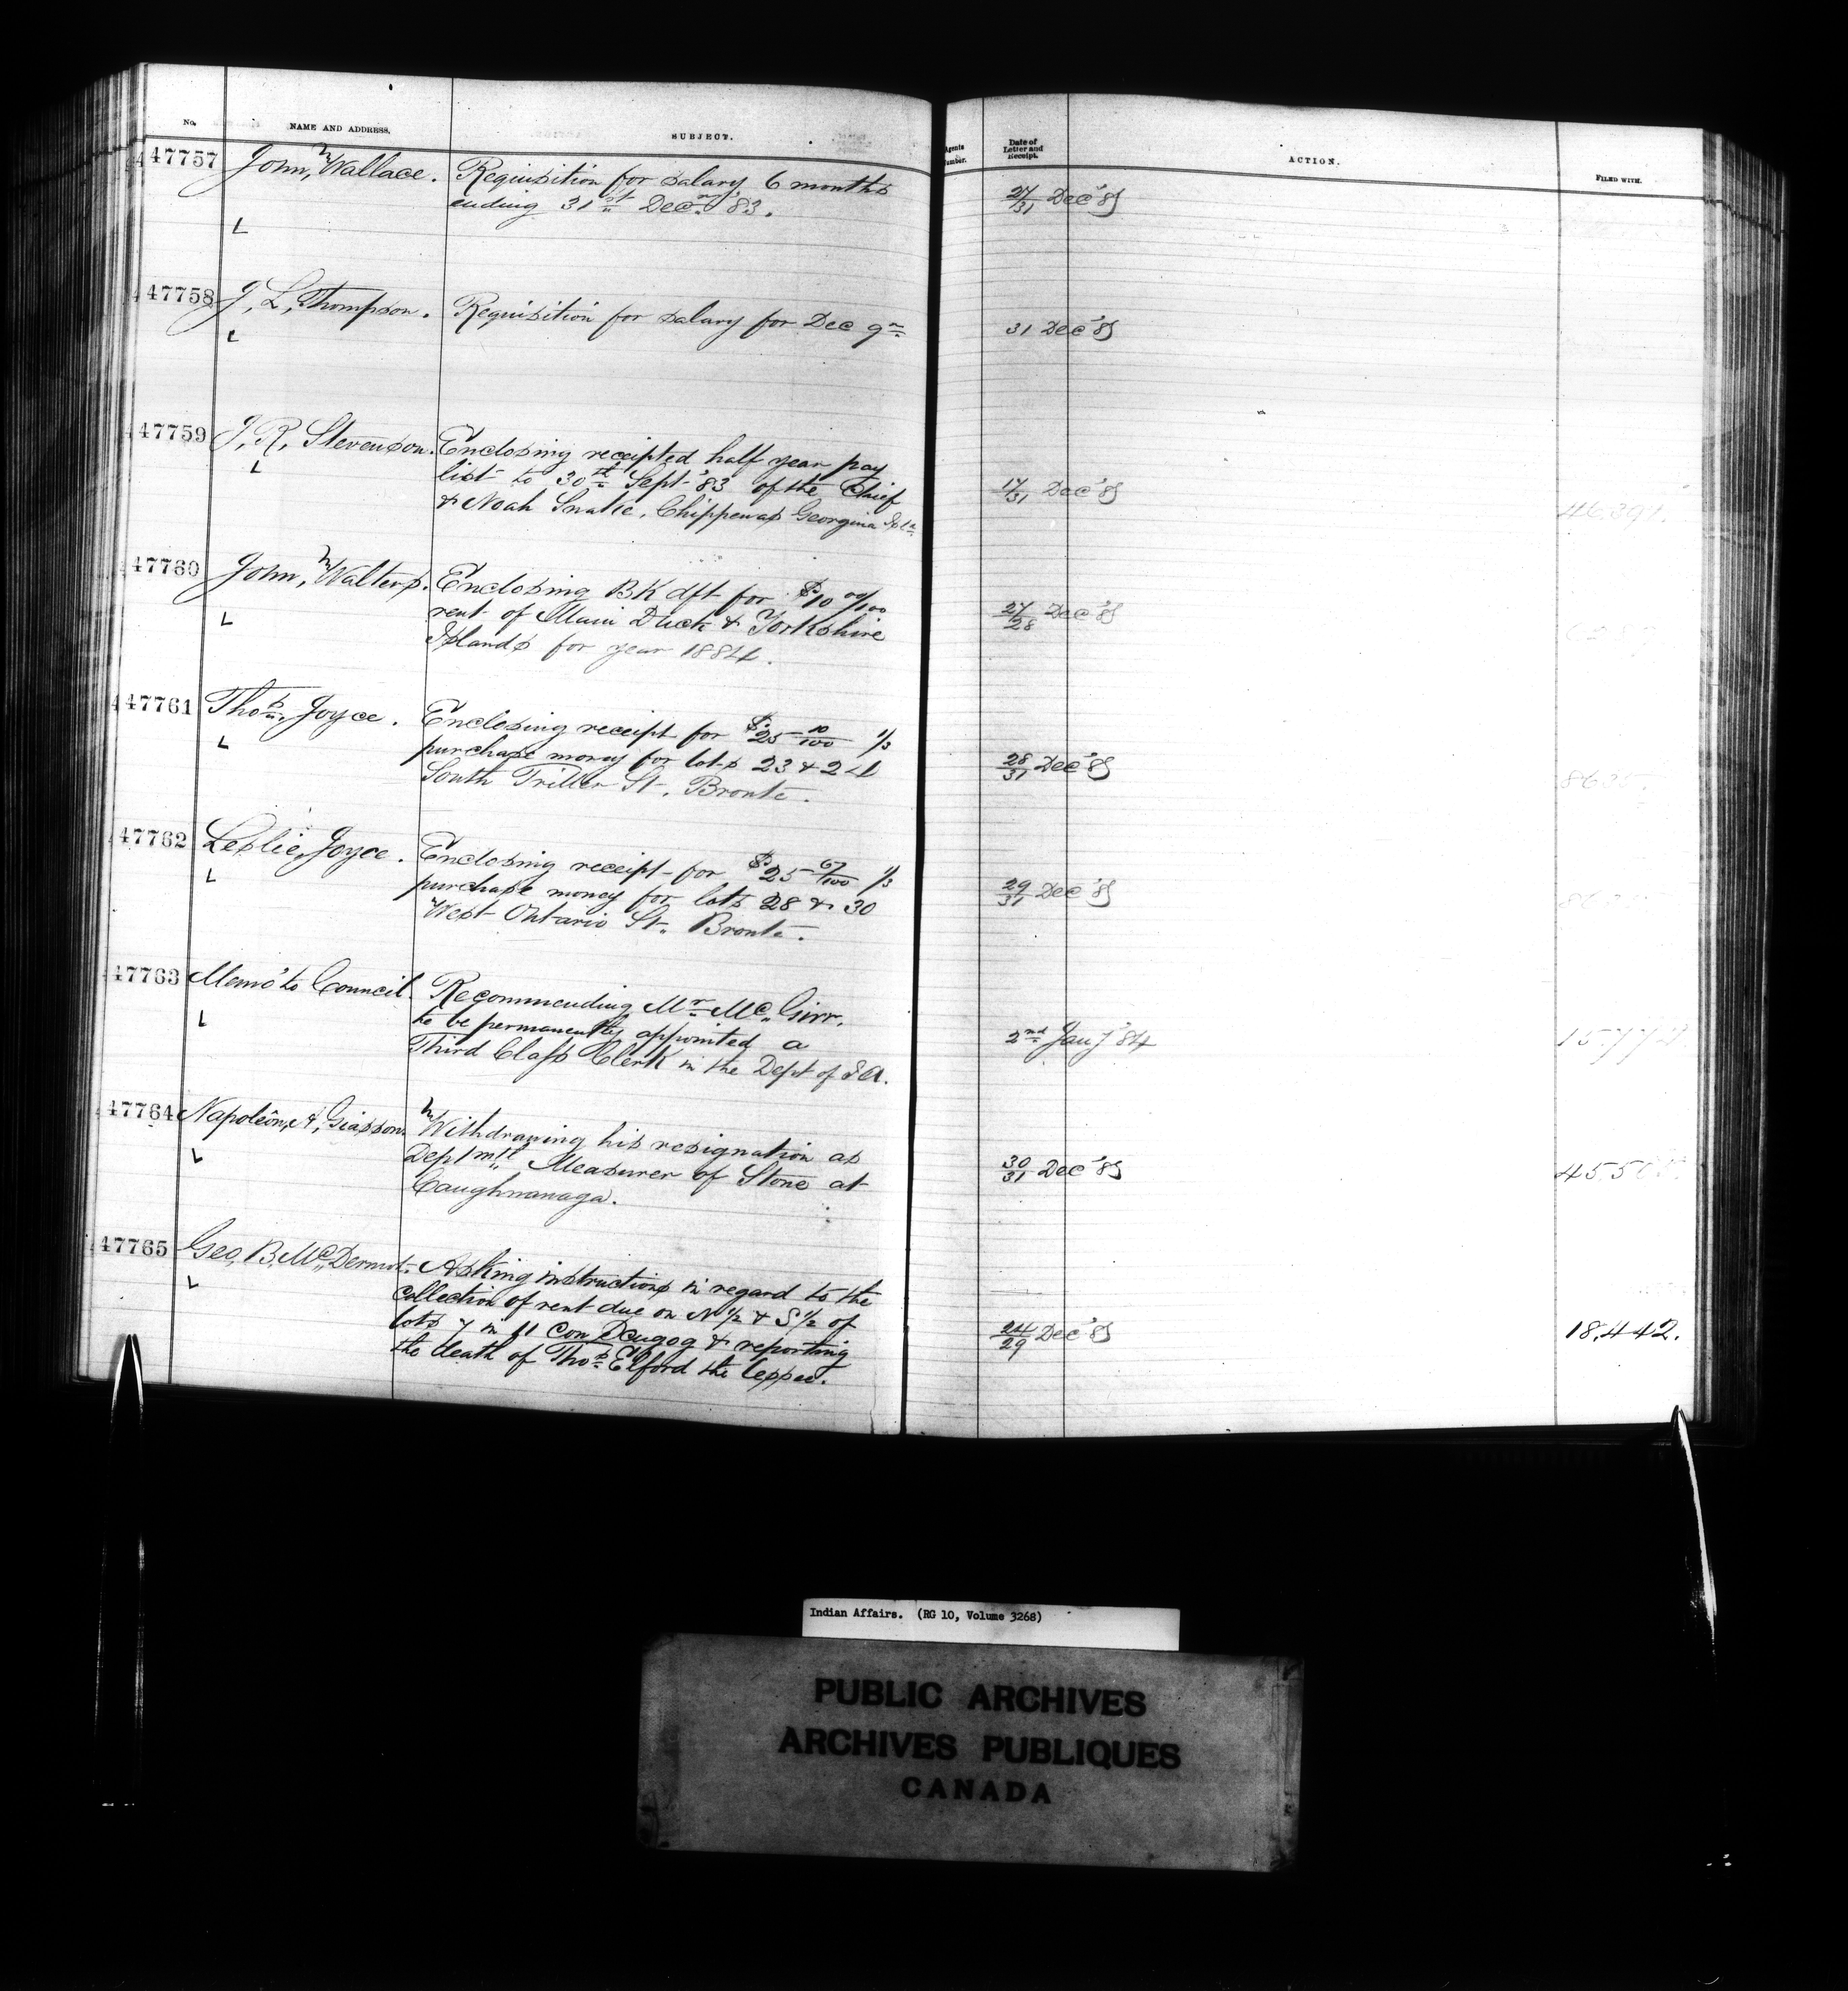 No. NAME AND ADDRESS. SUBJECT. Agents Number. Date of Letter and Receipt. ACTION. FILED WITH.
47757 John, Wallace. Requisition for salary 6 months 27/31 Dec '83
ending 31st Decr. '83.
L
47758 J, L, Thompson. Requisition for salary for Dec qr 31 Dec '83
L
47759 J, R, Stevenson. Enclosing receipted half year pay 17/31 Dec '83 46391.
L list to 30th Sept '83 of the Chief
& Noah Snake, Chippewas Georgina Isld
47760 John, Walters. Enclosing BK dft for $10 00/100 27/28 Dec '83
L rent of Main Duck & Yorkshire
Islands for year 1884.
47761 Thos, Joyce. Enclosing receipt for $25 10/100 1/3 28/31 Dec '83 8635.
L purchase money for lots 23 & 24
South Triller St. Bronte.
47762 Leslie, Joyce. Enclosing receipt for $25 67/100 1/3 29/31 Dec '83
L purchase money for lots 28 & 30
West Ontario St. Bronte.
47763 Memo to Council. Recommending Mr McGirr, 2nd Jany '84
L to be permanently appointed a
Third Class Clerk in the Dept of I A.
47764 Napoléon, A, Giasson Withdrawing his resignation as 30/31 Dec '83
L Deptmtl Measurer of Stone at
Caughnawaga.
47765 Geo, B, McDermot. Asking instructions in regard to the 24/29 Dec '83 18,442.
L collection of rent due on N 1/2 & S 1/2 of
lots 7 in 11 Con Scugog & reporting
the death of Thos Elford the lessee.
Indian Affairs. (RG 10, Volume 3268)
PUBLIC ARCHIVES
ARCHIVES PUBLIQUES
CANADA